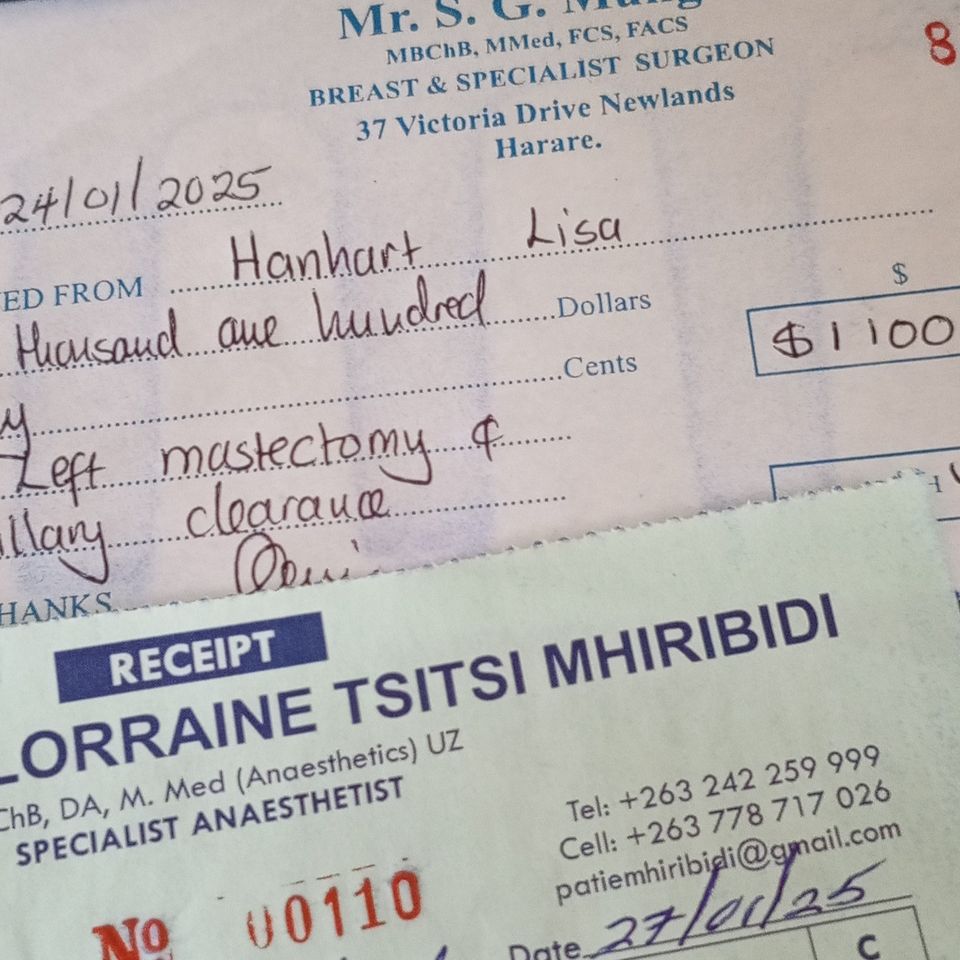 Mr. S. G.
MBChB, MMed, FCS, FACS
BREAST & SPECIALIST SURGEON
37 Victoria Drive Newlands
Harare.
8
24/01/2025
ED FROM Hanhart Lisa
thousand one hundred Dollars
$
$1100
y Cents
Left mastectomy &
llary clearance
HANKS
RECEIPT
LORRAINE TSITSI MHIRIBIDI
ChB, DA, M. Med (Anaesthetics) UZ
SPECIALIST ANAESTHETIST
Tel: +263 242 259 999
Cell: +263 778 717 026
patiemhiribidi@gmail.com
No 00110
Date 27/01/25
C